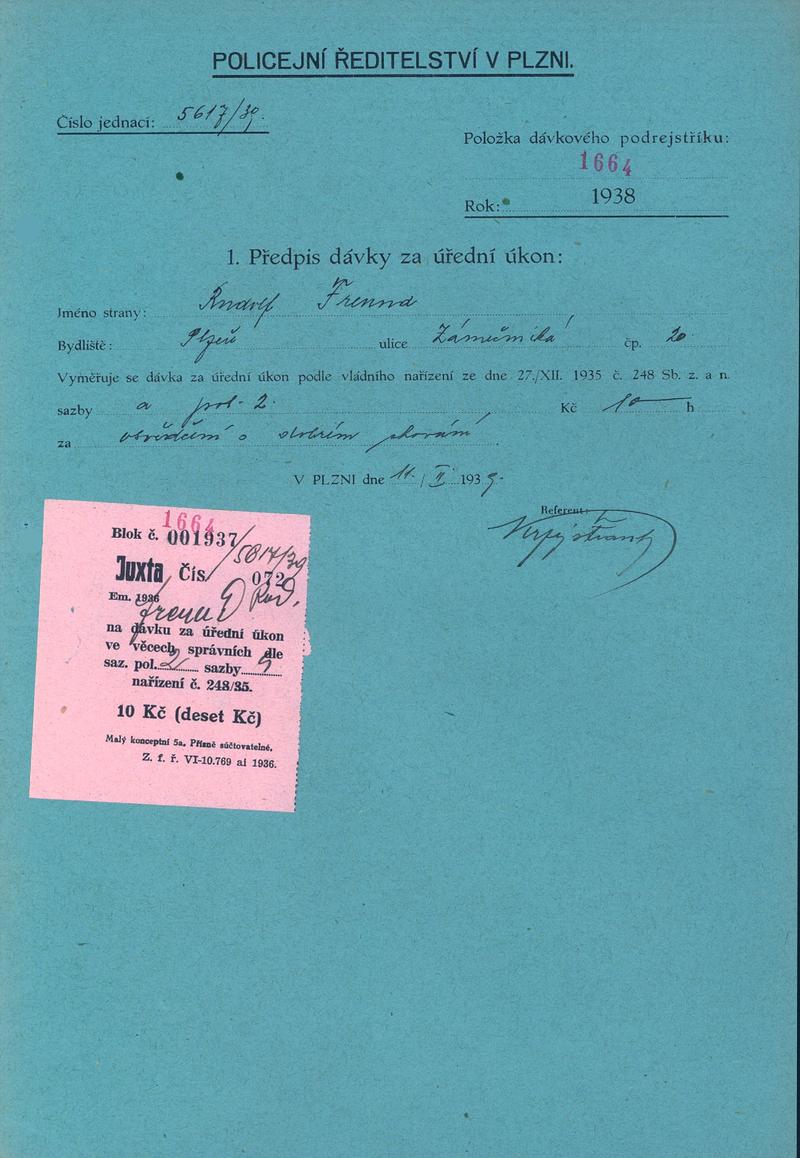 POLICEJNÍ ŘEDITELSTVÍ V PLZNI.
Číslo jednací: 5617/39.
Položka dávkového podrejstříku:
1664
Rok: 1938
1. Předpis dávky za úřední úkon:
Jméno strany: Rudolf Freund
Bydliště: Plzeň ulice Zámečnická čp. 20
Vyměřuje se dávka za úřední úkon podle vládního nařízení ze dne 27./XII. 1935 č. 248 Sb. z. a n.
sazby a pol. 2. Kč 10 h
za osvědčení o dobrém chování.
V PLZNI dne 11./II. 1939.
Referent:
1664
Blok č. 001937
Juxta Čís. 072
Em. 1936
Freund Rud.
na dávku za úřední úkon
ve věcech správních dle
saz. pol. 2 sazby
nařízení č. 248/35.
10 Kč (deset Kč)
Malý konceptní 5a. Přísně súčtovatelné.
Z. f. ř. VI-10.769 ai 1936.